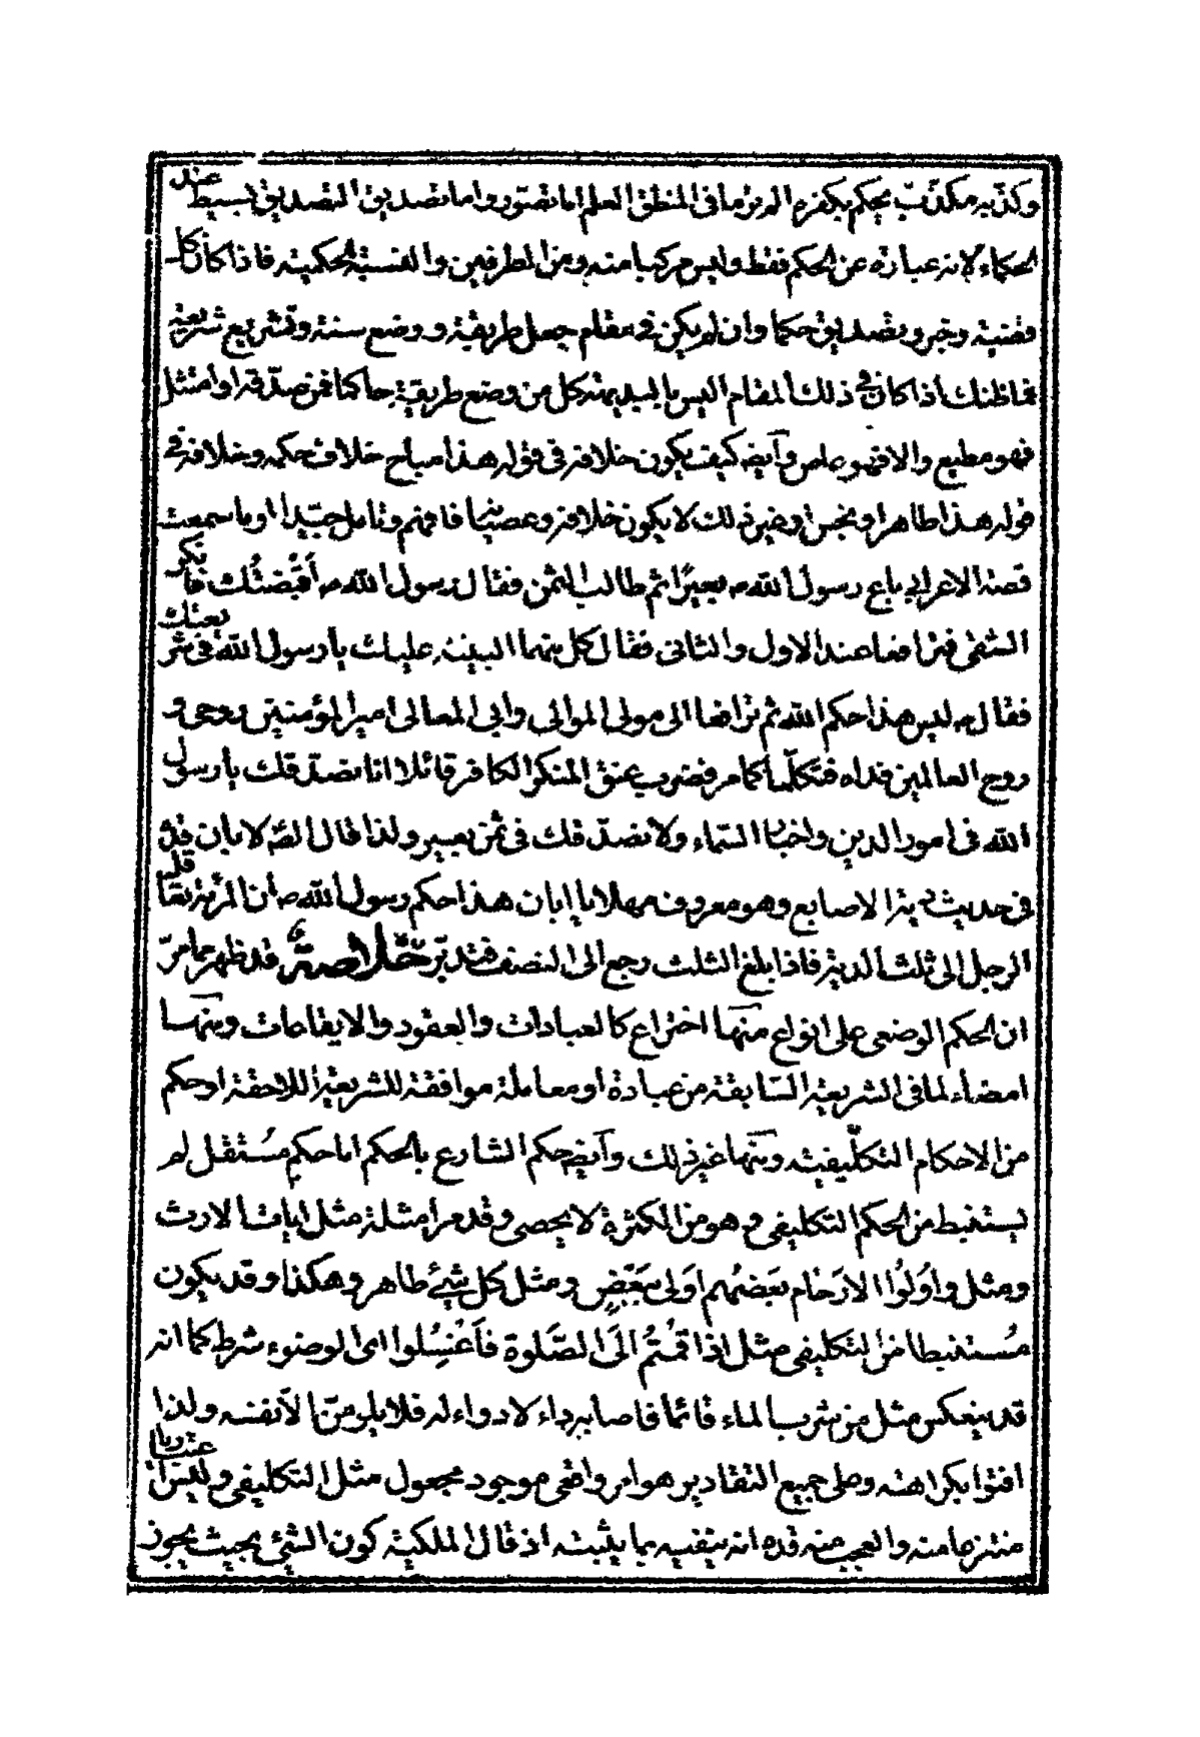 وكذّبه مكذّب يحكم بكفره الم تر ما فى المنطق العلم اما تصوّر واما تصديق التصديق بسيط عند
الحكماء لانه عبارة عن الحكم فقط وليس مركبا منه ومن الطرفين والنسبة الحكمية فاذا كان كل
قضية وخبر وتصديق حكما وان لم يكن فى مقام جعل طريقة ووضع سنة وتشريع شريعة
فما ظنك اذا كان فى ذلك المقام اليس بالبديهة كل من وضع طريقة حاكما فمن صدّقه او امتثل
فهو مطيع والا فهو عاص وايضه كيف يكون خلافه فى قوله هذا مباح خلاف حكمه وخلافه فى
قوله هذا طاهر او نجس او غير ذلك لا يكون خلافه وعصيانا فافهم وتامل جيّدا او ما سمعت
قصة الاعرابى باع رسول الله ص بعيرًا ثم طالب الثمن فقال رسول الله ص أقبضتُك فانكر
الشقى فترافعا عند الاول والثانى فقال كل منهما البينة عليك يا رسول الله فى ثمن بعيرك
فقال ص ليس هذا حكم الله ثم ترافعا الى مولى الموالى وابى المعالى امير المؤمنين روحى و
روح العالمين فداه فتكلّما كما مر فضرب عنق المنكر الكافر قائلا انا نصدّقك يا رسول
الله فى امور الدين واخبار السّماء ولا نصدّقك فى ثمن بعير ولذا قال الصّ لابان
فى حديث دية الاصابع وهو معروف مهلا يا ابان هذا حكم رسول الله ص ان المرئة تعاقل
الرجل الى ثلث الدية فاذا بلغ الثلث رجع الى النصف فتدبّر قد ظهر مما مرّ
ان الحكم الوضعى على انواع منها اختراع كالعبادات والعقود والايقاعات ومنها
امضاء لما فى الشريعة السّابقة من عبادة او معاملة موافقة للشريعة اللاحقة او حكم
من الاحكام التكلّيفيّة ومنها غير ذلك وايضه حكم الشارع بالحكم اما حكم مُستقل لم
يستنبط من الحكم التكليفى وهو من الكثرة لا يحصى وقد مر امثلة مثل ايات الارث
ومثل واُولُوا الارْحام بَعضهُم اَولى بِبَعْضٍ ومثل كل شيئ طاهر وهكذا وقد يكون
مُستنبطا من التكليفى مثل اذا قُمتُم اِلَى الصَّلوة فاَغْسِلوا اى الوضوء شرط كما انه
قد ينعكس مثل من شرب الماء قائما فاصابه داء لا دواء له فلا يلومنّ الاّ نفسه ولذا
افتوا بكراهته وعلى جميع التقادير هو امر واقعى موجود مجعول مثل التكليفى وليس
منتزعا منه والعجب منه قده انه ينفيه بما يثبته اذ قال الملكية كون الشيئ بحيث يجوز